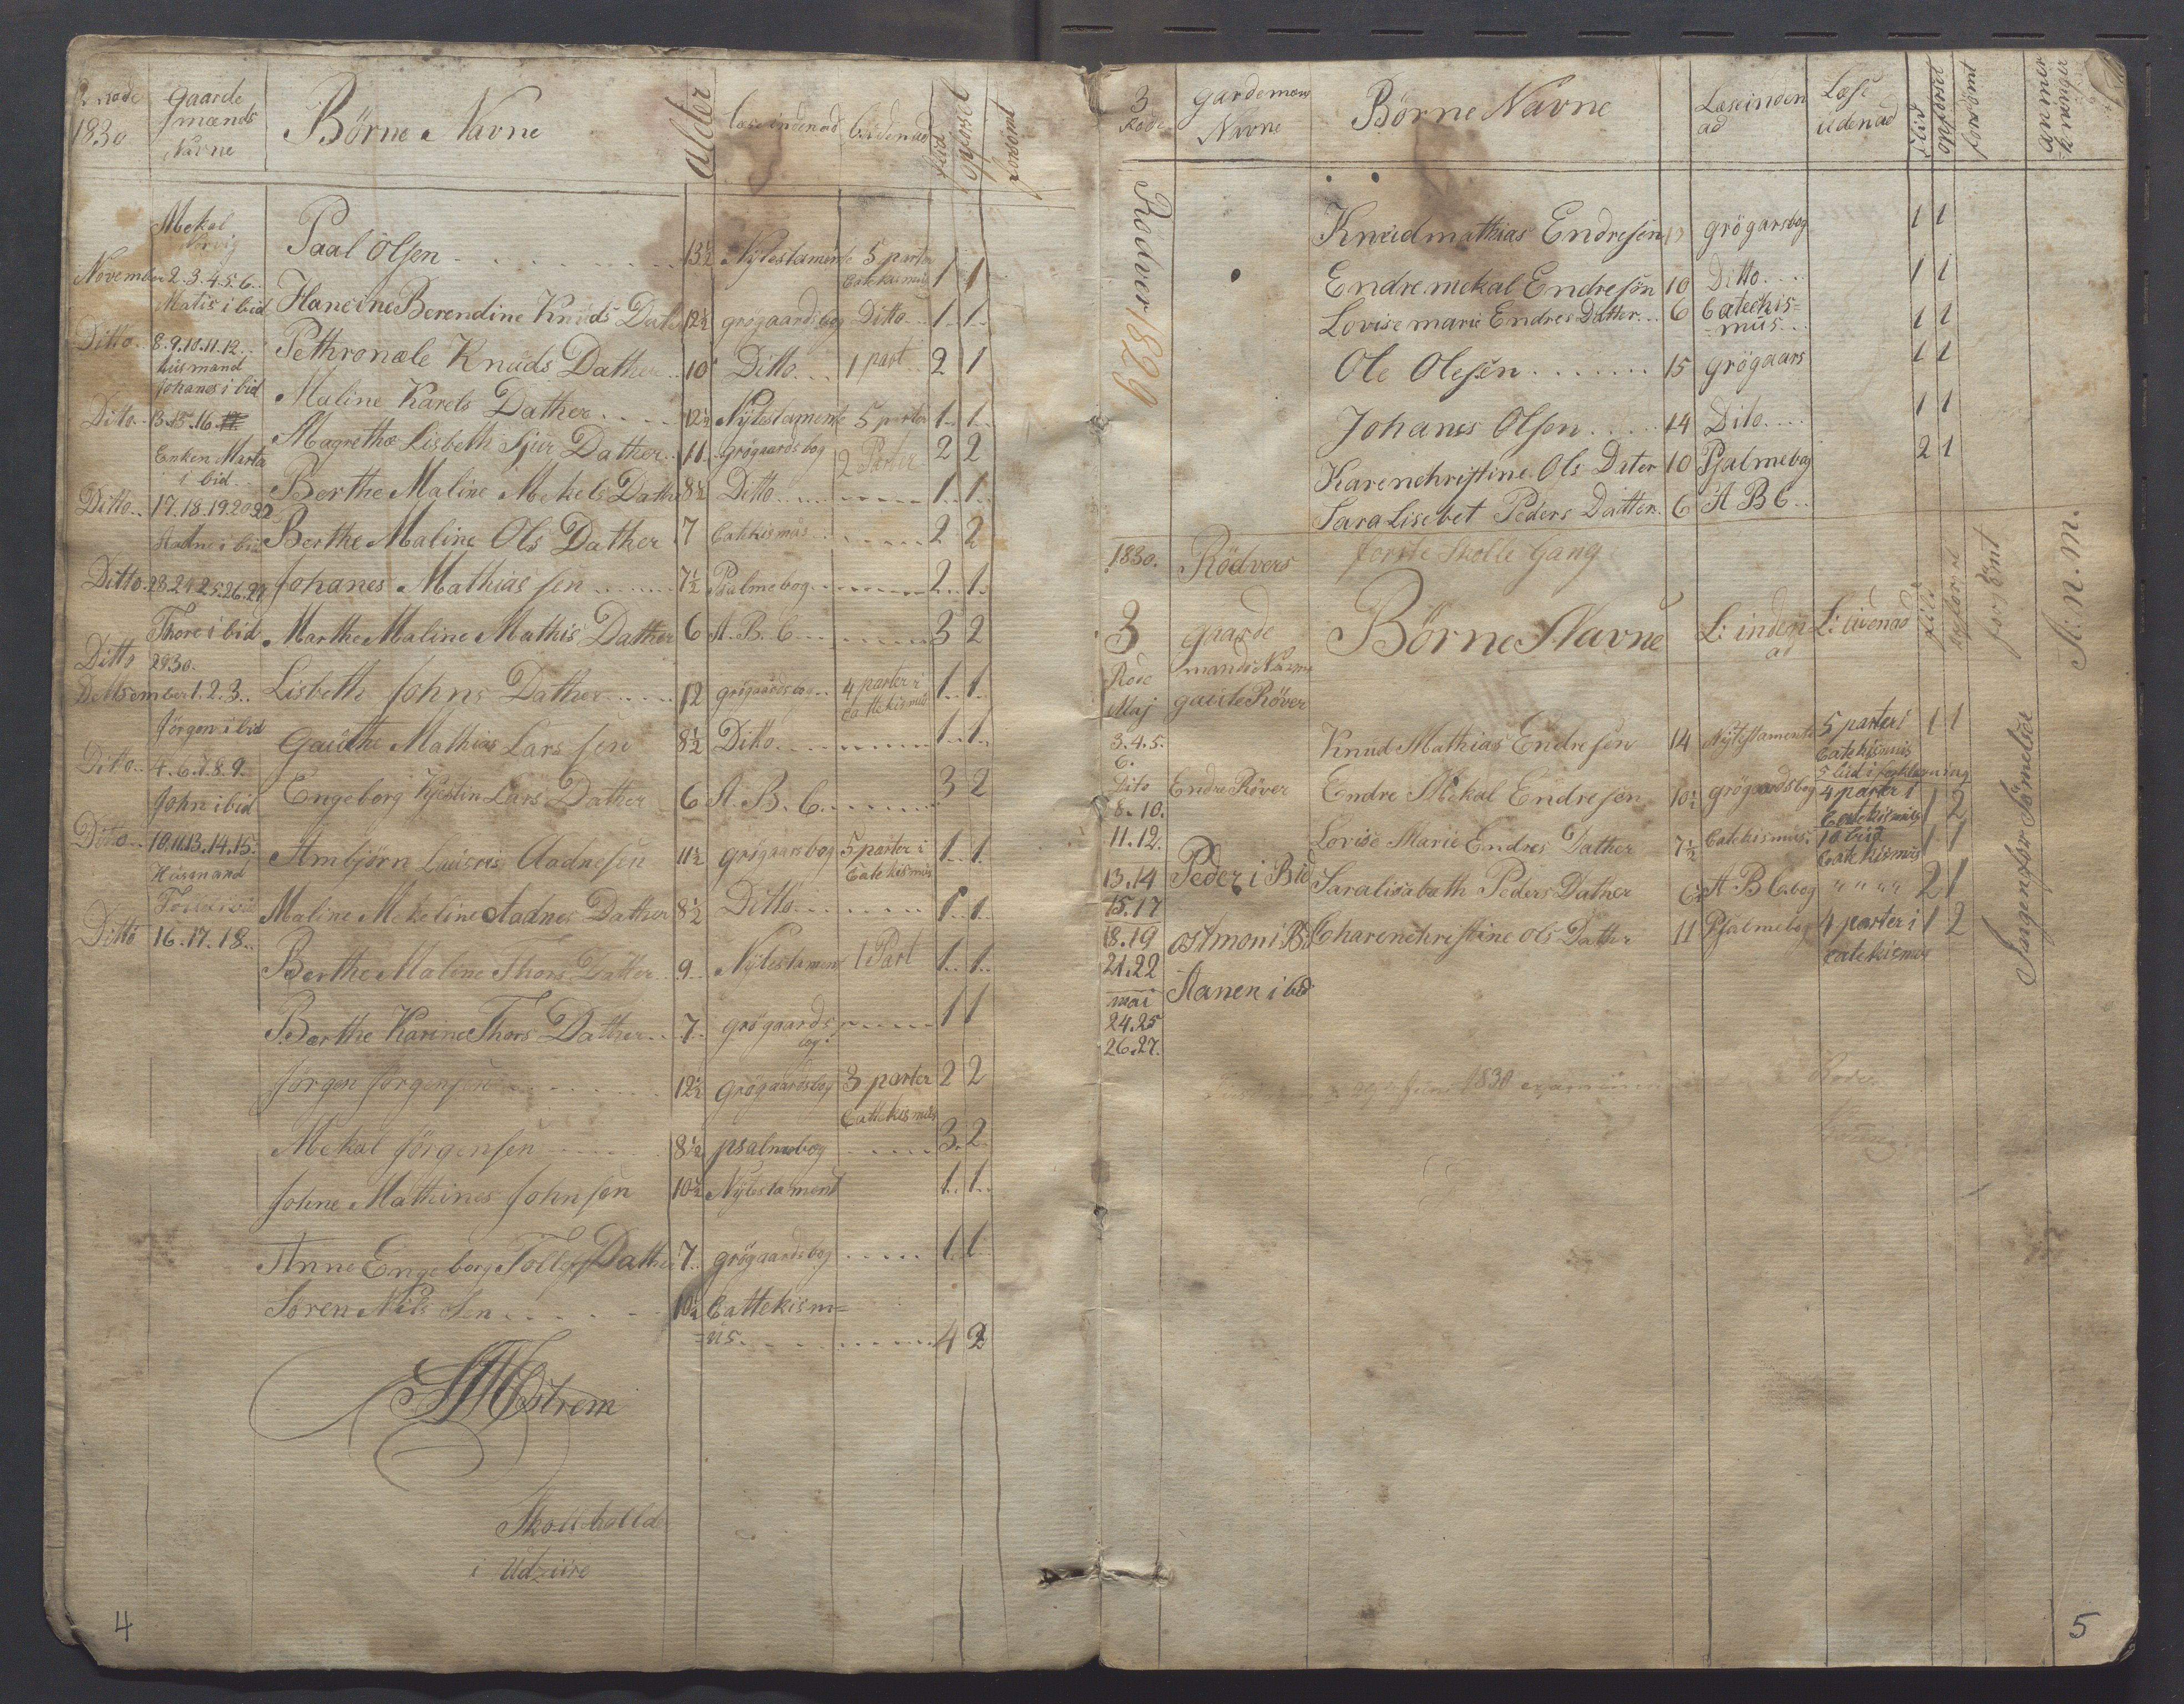 Rode 1830 Gaarde mænds Navne Börne Navne alder læse indenad Udenad flid opförsel forsömt
Mekal
Paal Olsen 13½ Nÿtestamente 5 parter Catekismus 1 1
November 2.3.4.5.6.
Matis i bid Hansine Berendine Knuds Dather 12½ grögaards bog Ditto 1 1
Ditto 8.9.10.11.12. Pethronæle Knuds Dather 10 Ditto 1 part 2 1
Husmand Johanes i bid
Maline Karels Dather 12½ Nÿtestamente 5 parter 1 1
Ditto 13.15.16.
Magrethe Lisbeth Sjur Dather 11 grögaards bog 2 Parter 2 2
Enken Marta i bid
Berthe Maline Mekels Dather 8½ Ditto 1 1
Ditto 17.18.19.20.22
Aadne i bid Berthe Maline Ols Dather 7 Catekismus 2 2
Ditto 23.24.25.26.27 Johanes Mathias sen 7½ Psalmebog 2 1
Thore i bid Marthe Maline Mathis Dather 6 A.B.C 3 2
Ditto 29.30.
Desember 1.2.3. Lisbeth Johns Dather 12 grögaardsbog 4 parter i Cattekismus 1 1
Jörgen i bid Gauthe Mathias Lars sen 8½ Ditto 1 1
Ditto 4.6.7.8.9.
John i bid Engeborg Kjestin Lars Dather 6 A.B.C. 3 2
Ditto 10.11.13.14.15.
Husmand Ambjörn Aadnesen 11½ grögaarsbog 5 parter i Catekismus 1 1
Maline Mekeline Aadnes Dather 8½ Ditto 1 1
Ditto 16.17.18.
Berthe Maline Thors Dather 9 Nÿtestament 1 Part 1 1
Berthe Karine Thors Dather 7 grögaards bog 1 1
Jörgen Jörgensen 12½ grögaardsbog 3 parter Cattekismus 2 2
Mekal Jörgensen 8½ psalmebog 3 2
Johne Mathines Johnsen 10½ Nÿtestament 1 1
Anne Engeborg Tollefs Dather 7 grögaardsbog 1 1
Sören Nils Sen 10½ Cattekism=
=us 4 2
Østrem
Skolleholder
i Udziire
4
3 Rode gardemæns Navne Börne Navne Læse inden ad Læse udenad Flid opförsel forsömt anmerkninger
Rødver 1829
Knud mathias Endresen grögarsbog 1 1
Endre mekal Endresön 10 Ditto 1 1
Lovise marie Endres Datter 6 Catechis=
=mus 1 1
Ole Olesen 15 grögaars 1 1
Johanes Olsen 14 Dito 1 1
Karenchristine Ols Dater 10 Psalmebog 2 1
Sara Lisebet Peders Datter 6 A B C
1830. Rödvers forste Skolle Gang
3 Rode gaarde mands Navne Börne Navne L: inden ad L: udenad flid opförsel forsömt A: n. m.
Maj gaute Röver
3.4.5. Knud Mathias Endresen 14 Nÿtestamente 5 parter i Catekismus 1 1
6.
Dito Endre Röver Endre Mekal Endresen 10½ grögaardsbog 4 parter i Catekismus 1 2
8.10.
11.12. Lovise Marie Endres Dather 7½ Catekismus 10 bud Catekismus 1 1
13.14 Peder i Bid Saralisabath Peders Dather 6½ A B C bog " " " " 2 1
15.17
18.19 Charenchristine Ols Dather 11 Psalmebog 4 parter i catekismus 1 2
21.22
mai Aanen i bid
24.25
26.27.
Ingen for Sömelse
1830
5